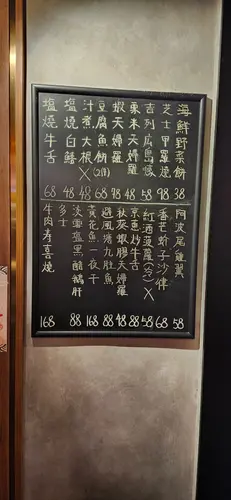 海鮮野菜餅 38
芝士甲羅燒 98
吉列広島蠔 58
粟米天婦羅 48
蝦天婦羅 98
豆腐魚餅(2個) 68
汁煮大根 X 48
塩燒白鱔 48
塩燒牛舌 68
阿波尾雞翼 58
香芒蚧子沙律 68
紅酒菠蘿(冷) X 58
京蔥炒牛舌 88
秋葵蝦膠天婦羅 48
避風塘九肚魚 88
黃花魚一夜干 168
淡雪塩黑醋鵝肝
多士 88
牛肉寿喜燒 168